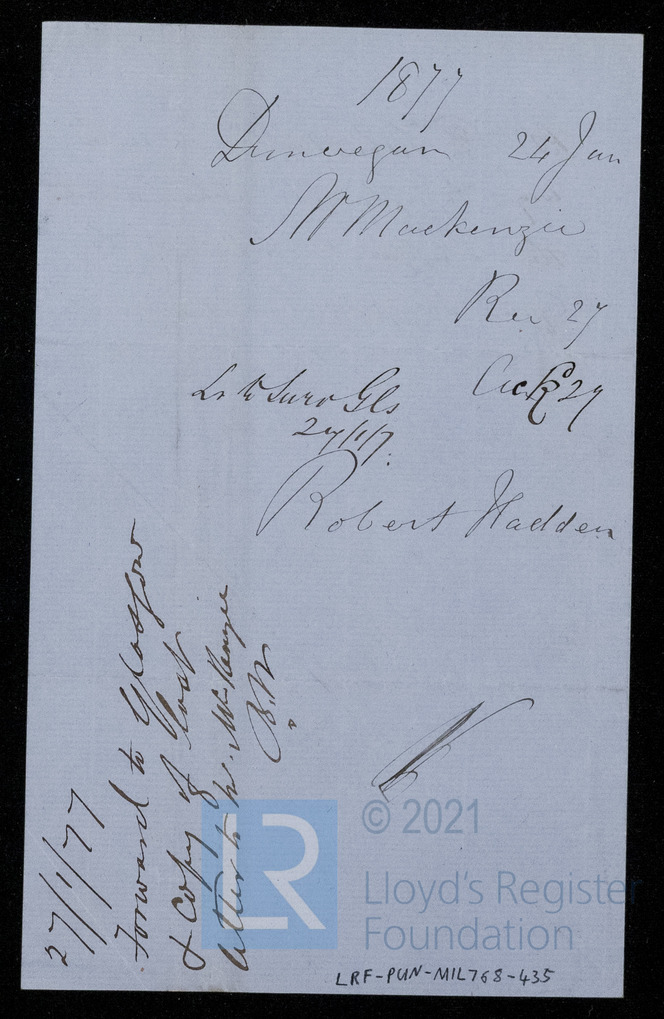 1877
Dunvegan 24 Jan
W Mackenzie
Rec 27
Ack 29
Lr to Surv Gls
27/1/7.
Robert Hadden
27/1/77
Forward to Glasgow
& copy of last
letter to W. McKenzie
B.W.
LR
© 2021
Lloyd's Register
Foundation
LRF-PUN-MIL768-435